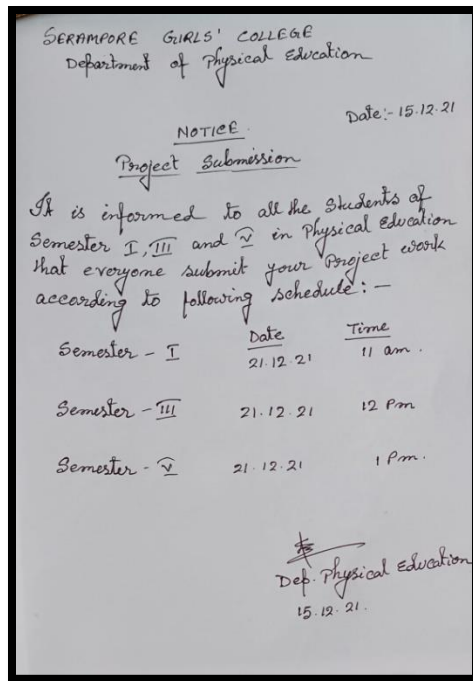 SERAMPORE GIRLS' COLLEGE
Department of Physical Education
Date:- 15.12.21
NOTICE
Project Submission
It is informed to all the Students of
Semester I, III and V in Physical Education
that everyone submit your Project work
according to following schedule: —
Date Time
Semester - I 21.12.21 11 am.
Semester - III 21.12.21 12 Pm
Semester - V 21.12.21 1 Pm.
Dep. Physical Education
15.12.21.